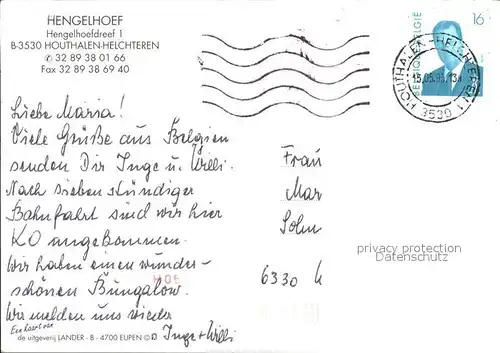 HENGELHOEF
Hengelhoefdreef 1
B-3530 HOUTHALEN-HELCHTEREN
✆ 32 89 38 01 66
Fax 32 89 38 69 40
BELGIQUE BELGIE
16
HOUTHALEN-HELCHTEREN 1
3530
Liebe Maria!
Viele Grüße aus Belgien
senden Dir Inge u. Willi.
Nach sieben stündiger
Bahnfahrt sind wir hier
KO angekommen.
Wir haben einen wunder-
schönen Bungalow.
Wir melden uns wieder
Inge + Willi
Frau
Mar
Sohn
6330
privacy protection
Datenschutz
Een kaart van
de uitgeverij LANDER - B - 4700 EUPEN ©